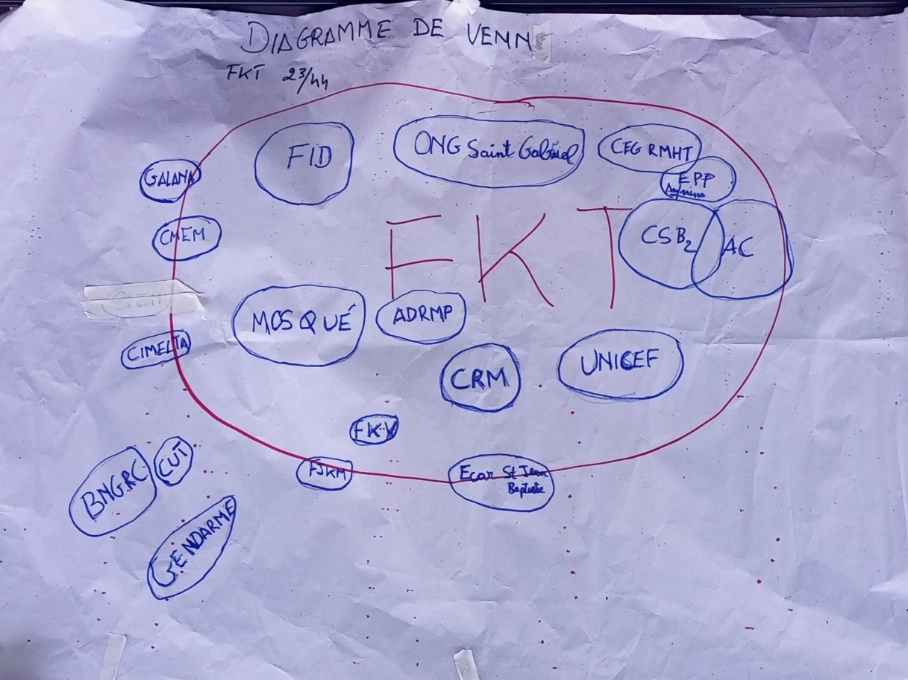 DIAGRAMME DE VENN
FKT 23/44
FID
ONG Saint Gabriel
CEG RMHT
EPP
GALANA
CMEM
FKT
CSB2
AC
MOSQUÉ
ADRMP
CIMELTA
CRM
UNICEF
FKV
FJKM
Ecar St Jean
Baptiste
BNGRC
CUT
GENDARME